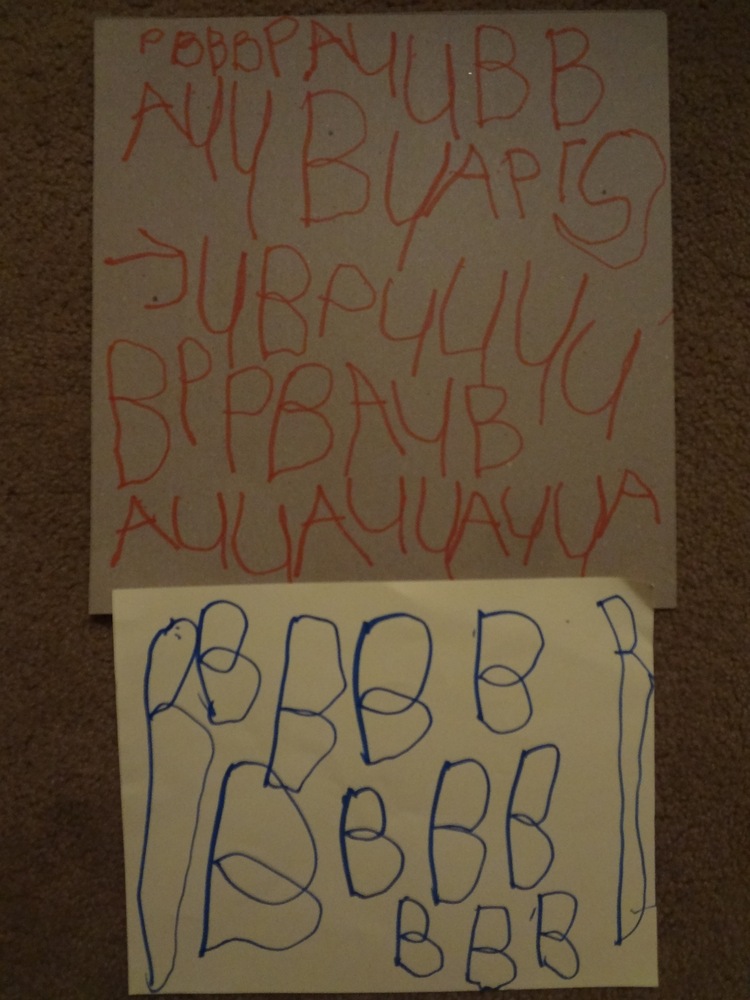 PBBBPAYYBB
AYYBYAPrS
JYBPYYYY
BPPBAYB
AYYAYYAYYA
BBBBBB
BBBB
BBB